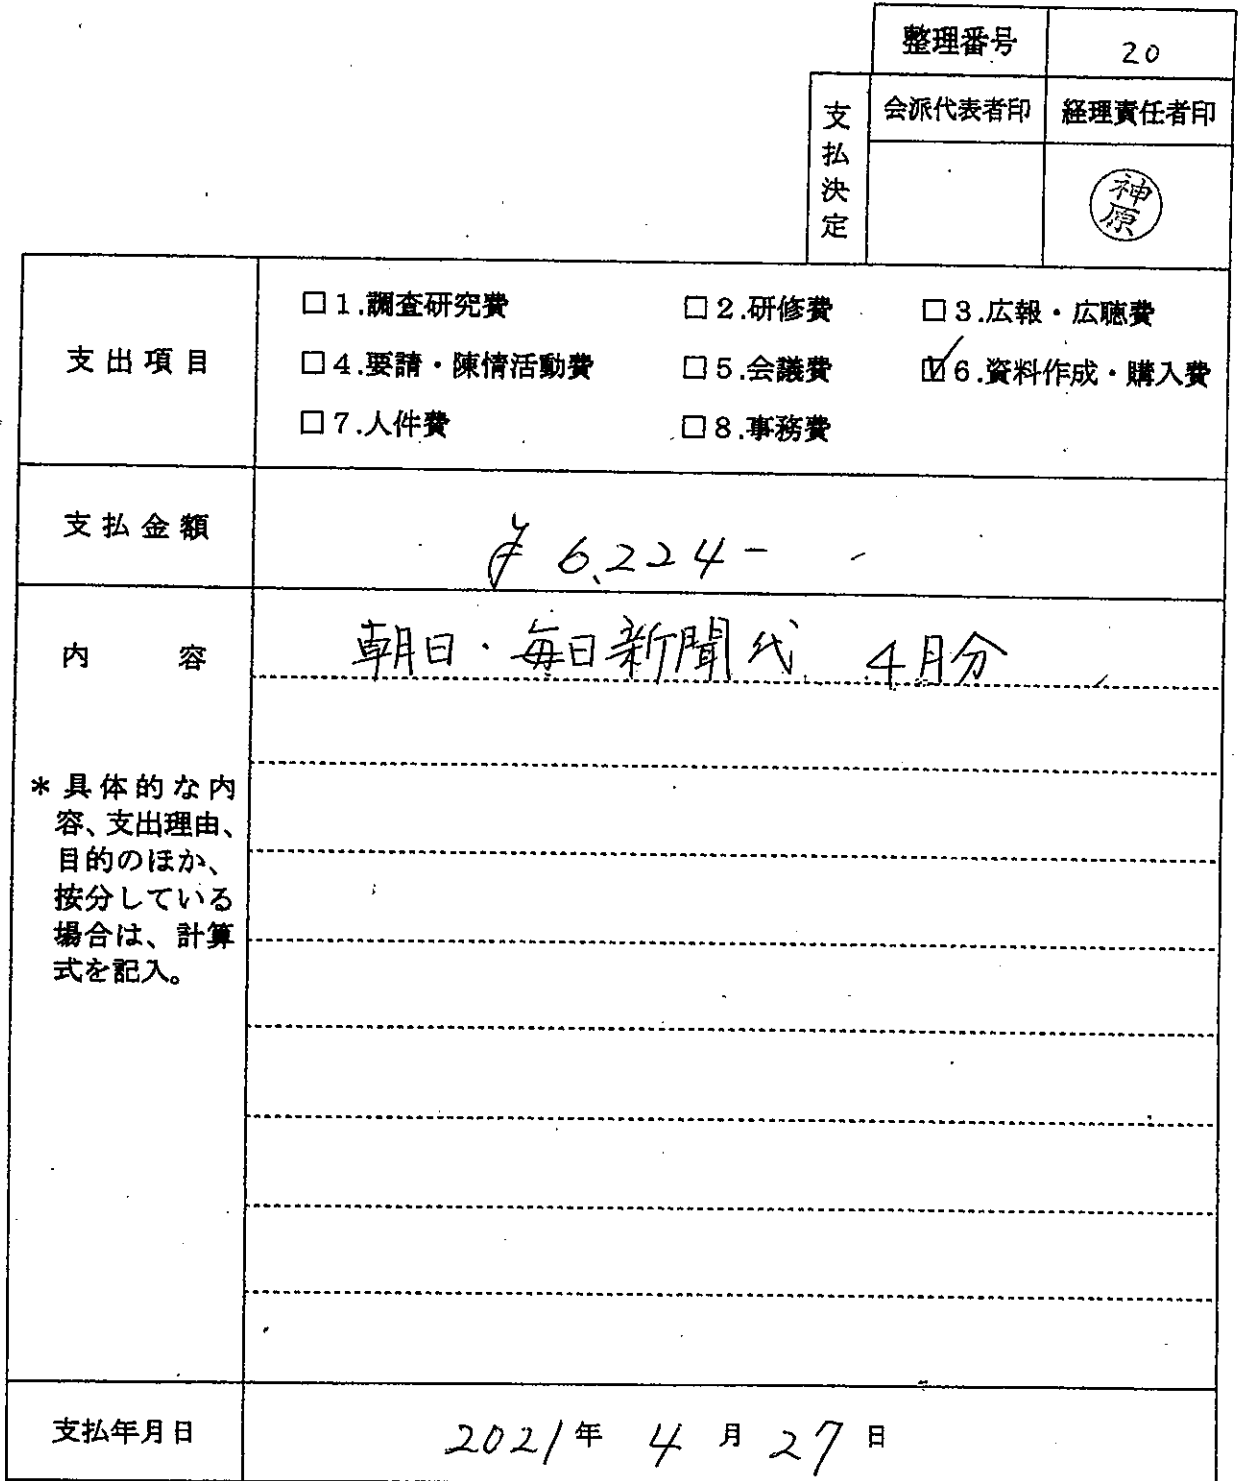 整理番号 20
支払決定 会派代表者印 経理責任者印
神原
支出項目 □1.調査研究費 □2.研修費 □3.広報・広聴費
□4.要請・陳情活動費 □5.会議費 ☑6.資料作成・購入費
□7.人件費 □8.事務費
支払金額 ¥6,224-
内容 朝日・毎日新聞代 4月分
*具体的な内
容、支出理由、
目的のほか、
按分している
場合は、計算
式を記入。
支払年月日 2021年 4月 27日